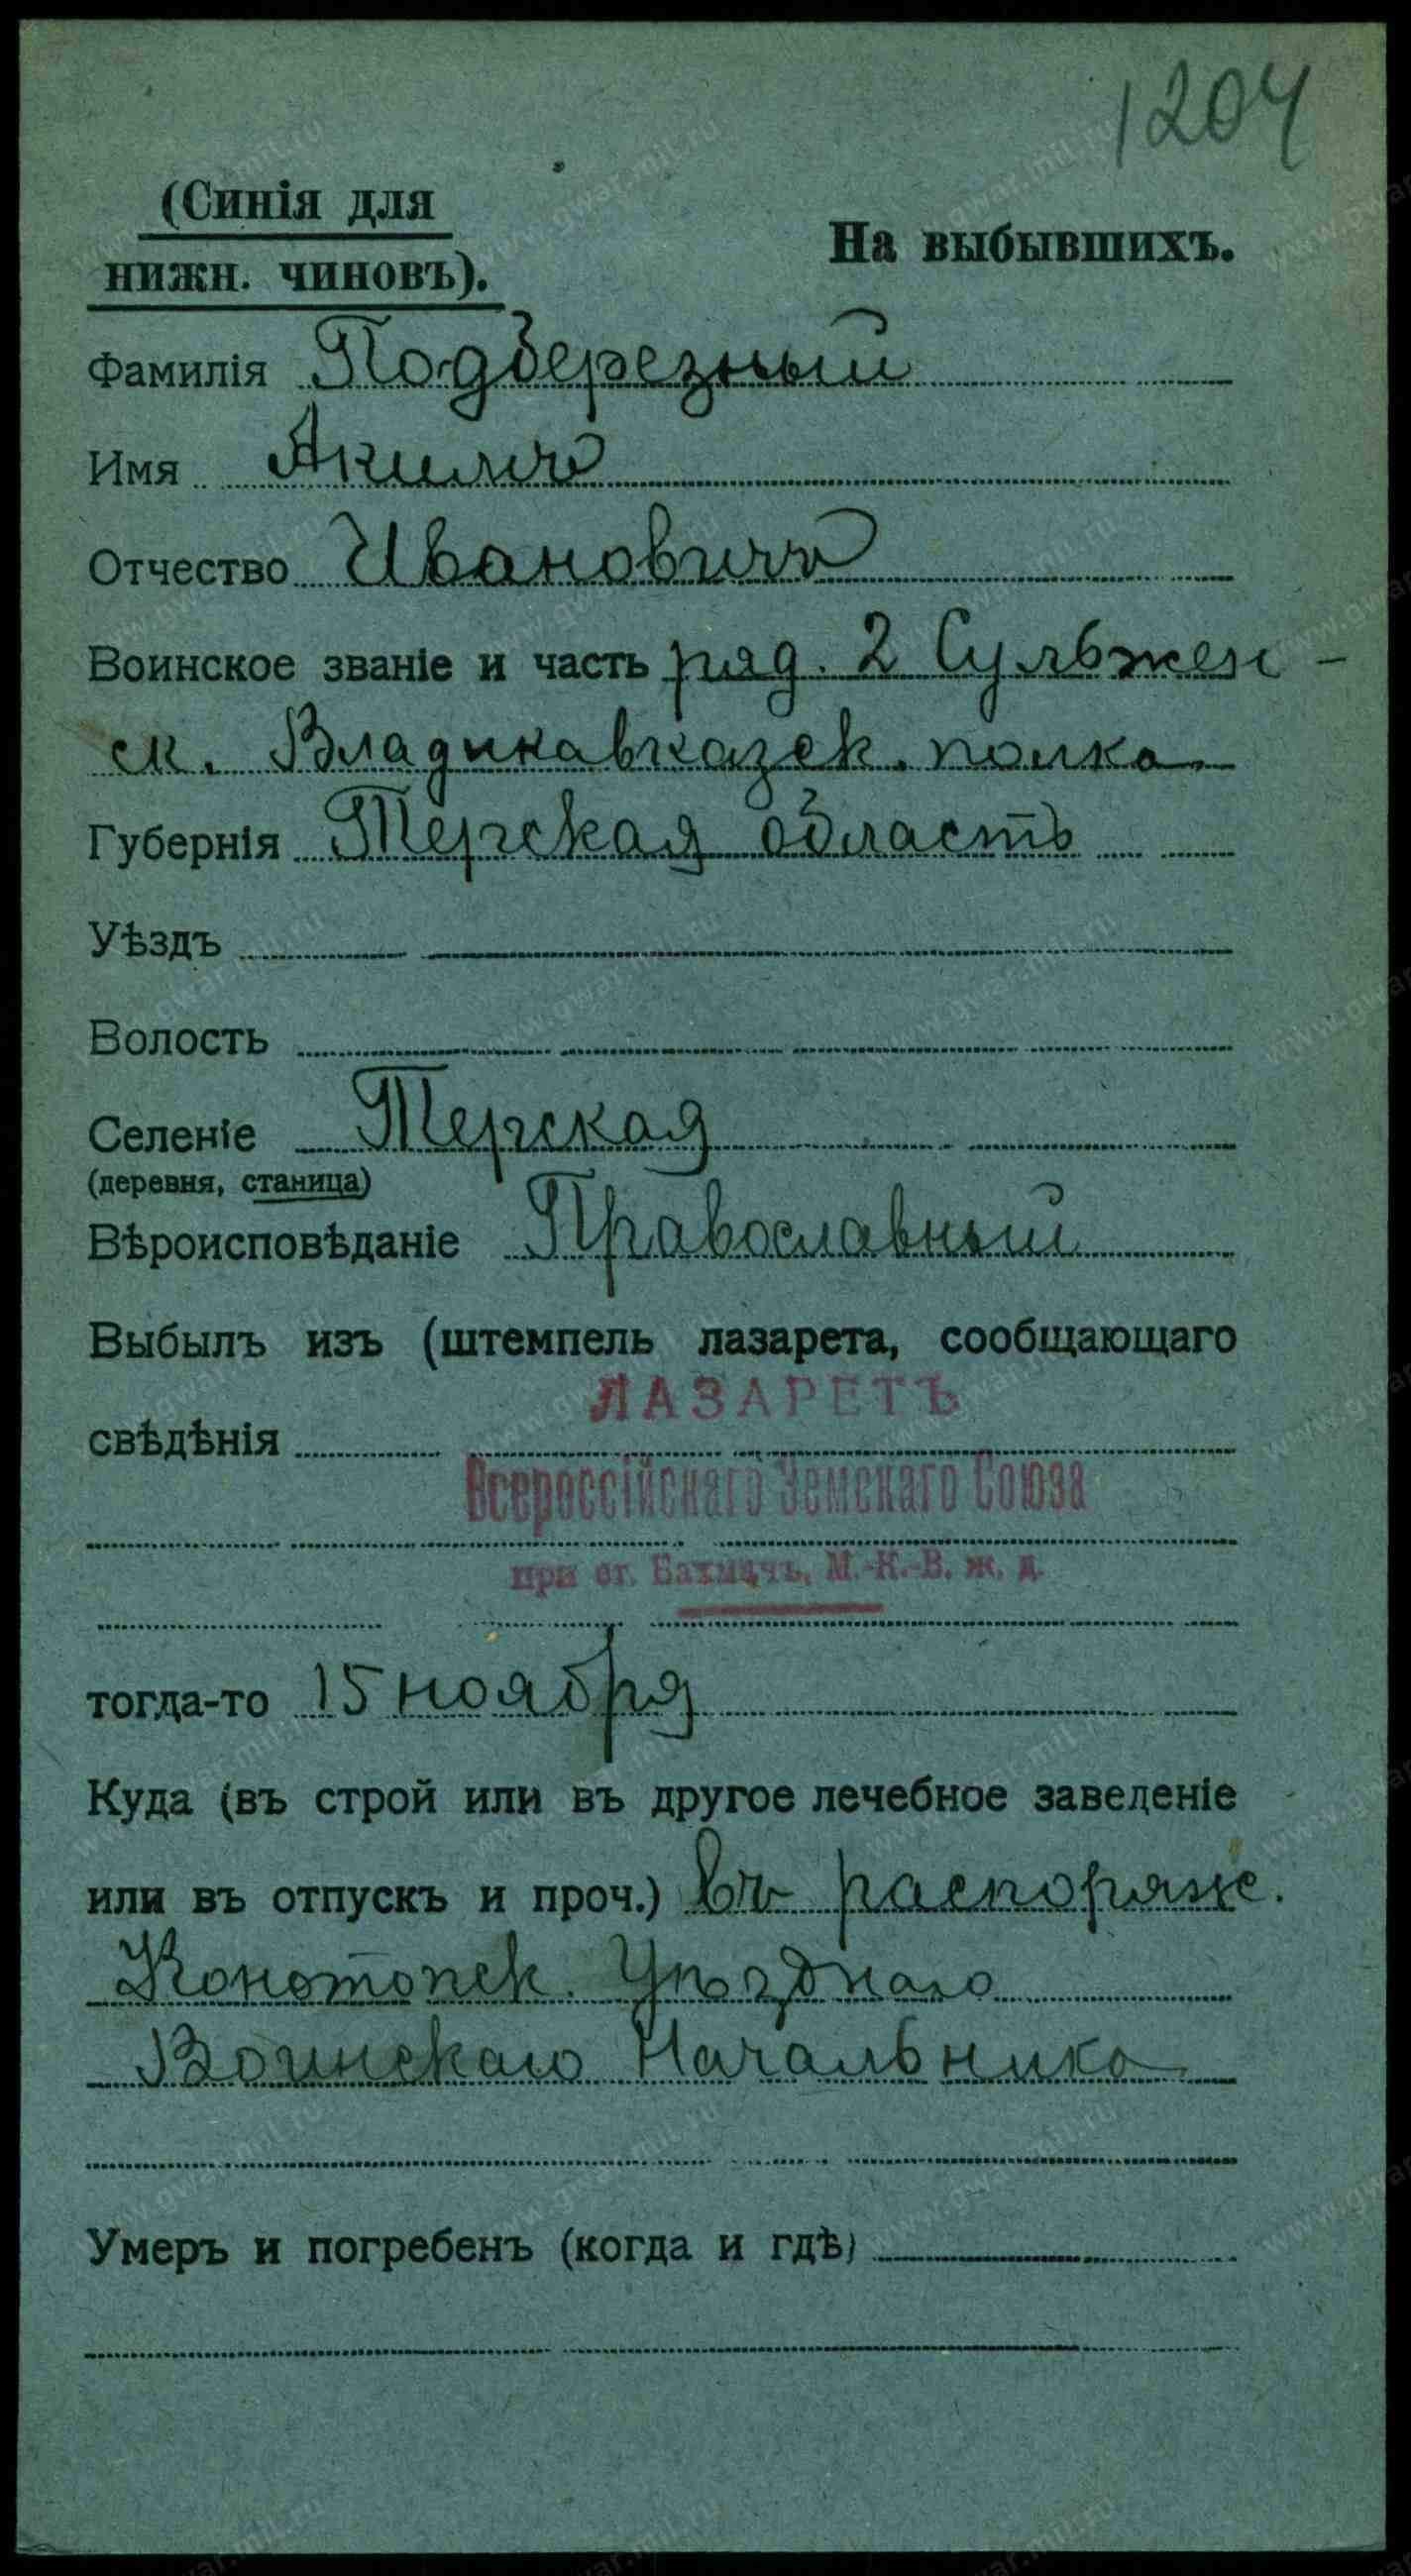 1204
(Синія для
нижн. чиновъ).
На выбывшихъ.
Фамилія Подберезный
Имя Акимъ
Отчество Ивановичъ
Воинское званіе и часть ряд. 2 Сульжен-
ск. Владикавказск. полка
Губернія Терская область
Уѣздъ
Волость
Селеніе Терская
(деревня, станица)
Вѣроисповѣданіе Православный
Выбылъ изъ (штемпель лазарета, сообщающаго
ЛАЗАРЕТЪ
свѣдѣнія
Всероссійскаго Земскаго Союза
при ст. Бахмачъ, М.-К.-В. ж. д.
тогда-то 15 ноября
Куда (въ строй или въ другое лечебное заведеніе
или въ отпускъ и проч.) въ распоряже.
Конотопск. Уѣзднаго
Воинскаго Начальника
Умеръ и погребенъ (когда и гдѣ)